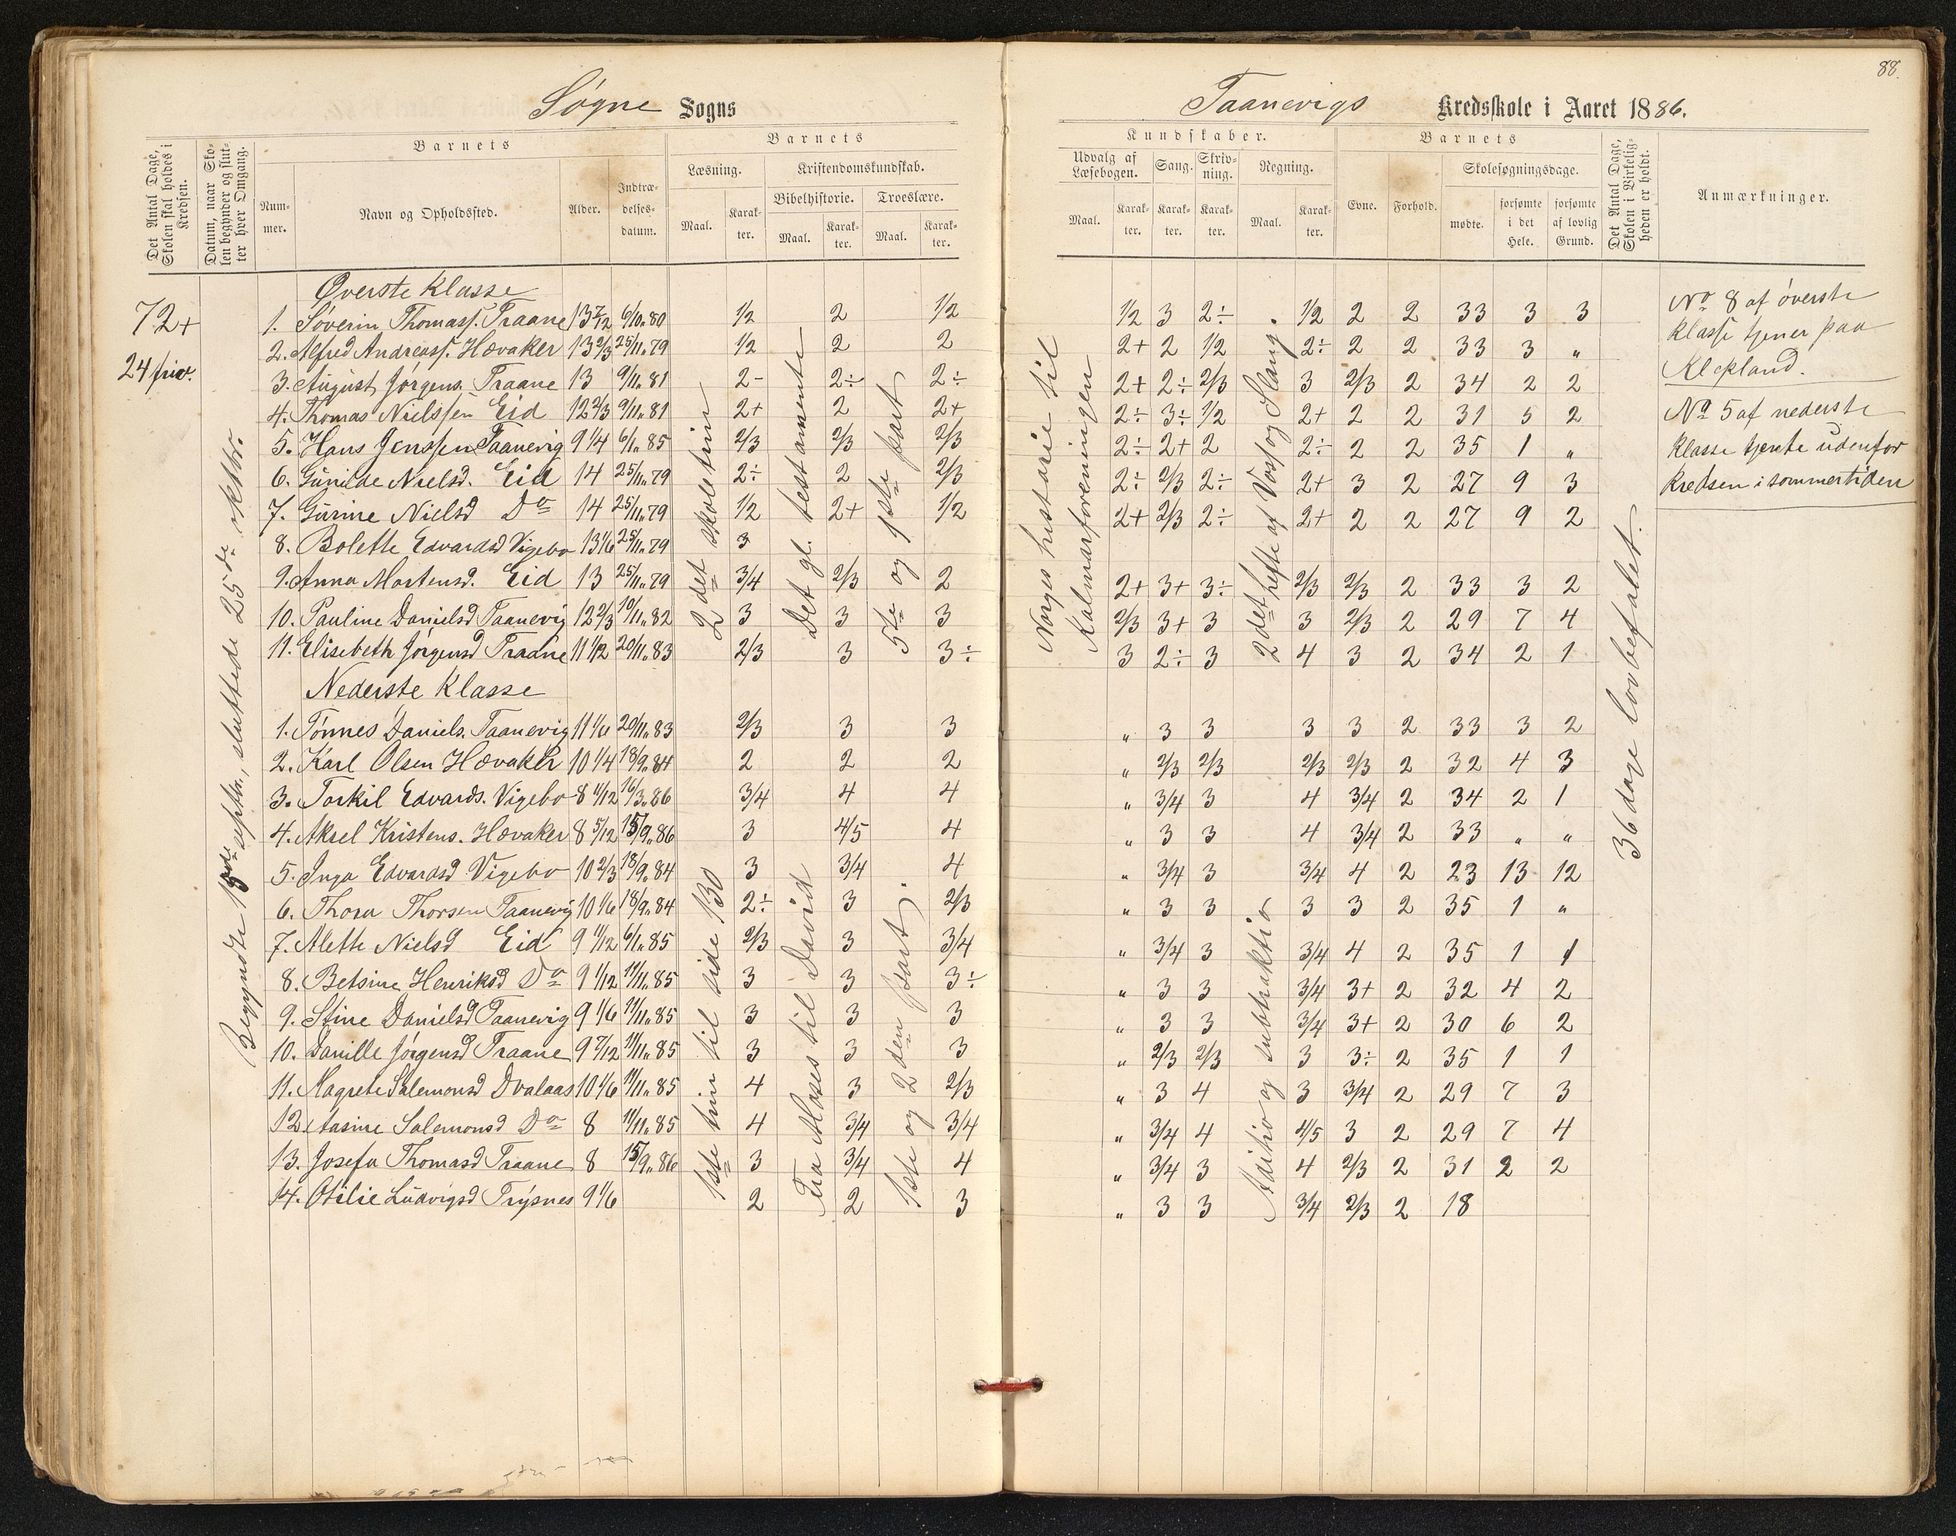 88.
Søgne Sogns
Taanevigs Kredsskole i Aaret 1886.
Det Antal Dage, Skolen skal holdes i Kredsen.
Datum, naar Skolen begynder og slutter hver Omgang.
Barnets
Nummer.
Navn og Opholdssted.
Alder.
Indtrædelsesdatum.
Barnets
Læsning.
Maal.
Karakter.
Kristendomskundskab.
Bibelhistorie.
Maal.
Karakter.
Troeslære.
Maal.
Karakter.
Kundskaber.
Udvalg af Læsebogen.
Maal.
Karakter.
Sang.
Karakter.
Skrivning.
Karakter.
Regning.
Maal.
Karakter.
Barnets
Evne.
Forhold.
Skolesøgningsdage.
mødte.
forsømte i det Hele.
forsømte af lovlig Grund.
Det Antal Dage, Skolen i Virkeligheden er holdt.
Anmærkninger.
72+
24 friv.
Begyndte 15de septbr., sluttede 25de oktbr.
Øverste Klasse
1. Søverin Thomass. Traane 13 7/12 6/10.80 1/2 2 1/2 1/2 3 2÷ 1/2 2 2 33 3 3
2. Alfred Andreass. Hævaker 13 2/3 25/11.79 1/2 2 2 2+ 2 1/2 2÷ 2 2 33 3 "
3. August Jørgens. Traane 13 9/11.81 2- 2÷ 2÷ 2+ 2÷ 2/3 3 2/3 2 34 2 2
4. Thomas Nielssen Eid 12 2/3 9/11.81 2+ 2 2+ 2÷ 3÷ 1/2 2+ 2 2 31 5 2
5. Hans Jenssen Taanevig 9 1/4 6/1.85 2/3 2/3 2/3 2÷ 2+ 2 2÷ 2 2 35 1 "
6. Gunilde Nielsd. Eid 14 25/11.79 2÷ 2 2/3 2÷ 2/3 2÷ 2+ 3 2 27 9 3
7. Gurine Nielsd Do 14 25/11.79 1/2 2+ 1/2 2+ 2/3 2÷ 2+ 2 2 27 9 2
8. Bolette Edvardsd Vigebo 13 1/6 25/11.79 3
9. Anna Mortensd. Eid 13 25/11.79 3/4 2/3 2 2+ 3+ 3÷ 2/3 2/3 2 33 3 2
10. Pauline Danielsd Taanevig 12 2/3 10/11.82 3 3 3 2/3 3+ 3 3 2/3 2 29 7 4
11. Elisebeth Jørgensd Traane 11 1/2 20/11.83 2/3 3 3÷ 3 2÷ 3 4 3 2 34 2 1
2det skoletrin
Det gl. testamente
5te og 1ste part
Norges historie til Kalmarforeningen
2det hefte af Vos og Slang.
Nederste Klasse
1. Tønnes Daniels. Taanevig 11 1/6 20/11.83 2/3 3 3 " 3 3 3 3 2 33 3 2
2. Karl Olsen Hævaker 10 1/4 18/9.84 2 2 2 " 2/3 2/3 2/3 2/3 2 32 4 3
3. Torkil Edvards. Vigebo 8 11/12 16/3.86 3/4 4 4 " 3/4 3 4 3/4 2 34 2 1
4. Aksel Kristens. Hævaker 8 5/12 15/9.86 3 4/5 4 " 3 3 4 3/4 2 33 " "
5. Inga Edvardsd Vigebo 10 2/3 18/9.84 3 3/4 4 " 3/4 3 3/4 4 2 23 13 12
6. Thora Thorsen Taanevig 10 1/6 18/9.84 2÷ 3 2/3 " 3 3 3 3 2 35 1 "
7. Alette Nielsd Eid 9 11/12 6/1.85 2/3 3 3/4 " 3/4 3 3/4 4 2 35 1 1
8. Betsine Henriksd Do 9 1/12 11/11.85 3 3 3÷ " 3 3 3/4 3+ 2 32 4 2
9. Stine Danielsd Taanevig 9 1/6 11/11.85 3 3 3 " 3 3 3/4 3+ 2 30 6 2
10. Danille Jørgensd Traane 9 7/12 11/11.85 3 3 3 " 2/3 2/3 3 3÷ 2 35 1 1
11. Magrete Salemonsd Dvalaas 10 1/6 11/11.85 4 3 2/3 " 3 4 3 3/4 2 29 7 3
12 Aasine Salemonsd Do 8 11/11.85 4 3/4 3/4 " 3/4 4 4/5 3 2 29 7 4
13. Josefa Thomasd Traane 8 15/9.86 3 3/4 4 " 3/4 3 4 2/3 2 31 2 2
14. Otilie Ludvigsd Trysnes 9 1/6 2 2 3 " 3 3 3/4 2/3 2 18
1ste trin til side 130
Fra Moses til David
1ste og 2den part.
Aditio og subtraktio
36 dage lovbefalet.
No 8 af øverste
klasse tjener paa
Klepland.
No 5 af nederste
klasse tjente udenfor
Kredsen i sommertiden